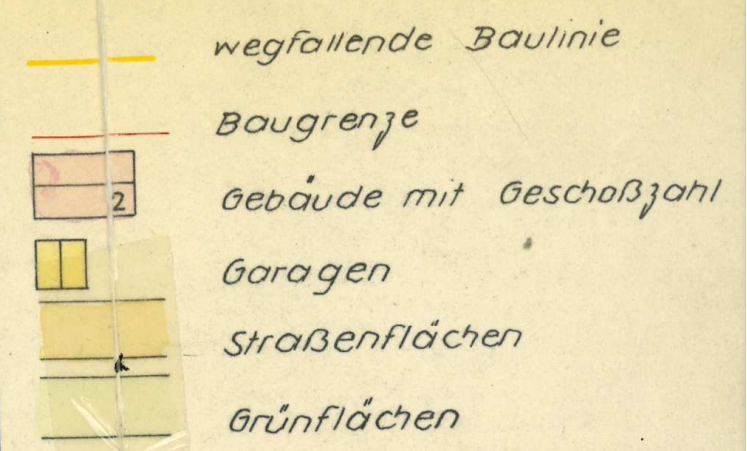 wegfallende Baulinie
Baugrenze
2
Gebäude mit Geschoßzahl
Garagen
Straßenflächen
Grünflächen